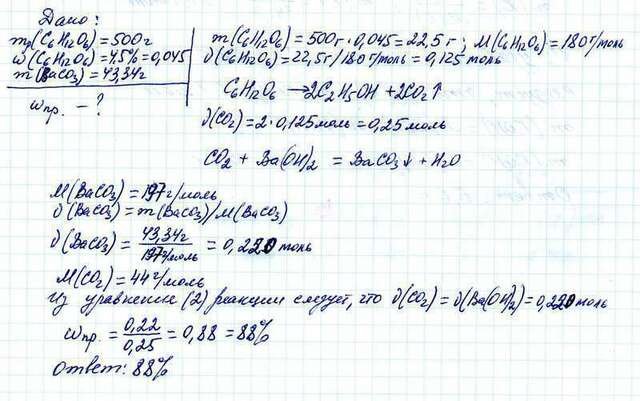 Дано:
m(C6H12O6) = 500г
ω(C6H12O6) = 4,5% = 0,045
m(BaCO3) = 43,34г
ωпр. - ?
m(C6H12O6) = 500г · 0,045 = 22,5 г ; M(C6H12O6) = 180 г/моль
ν(C6H12O6) = 22,5г/180 г/моль = 0,125 моль
C6H12O6 → 2C2H5OH + 2CO2↑
ν(CO2) = 2 · 0,125 моль = 0,25 моль
CO2 + Ba(OH)2 = BaCO3↓ + H2O
M(BaCO3) = 197 г/моль
ν(BaCO3) = m(BaCO3)/M(BaCO3)
ν(BaCO3) = 43,34г / 197г/моль = 0,220 моль
M(CO2) = 44 г/моль
Из уравнение (2) реакции следует, что ν(CO2) = ν(Ba(OH)2) = 0,220 моль
ωпр. = 0,22 / 0,25 = 0,88 = 88%
Ответ: 88%